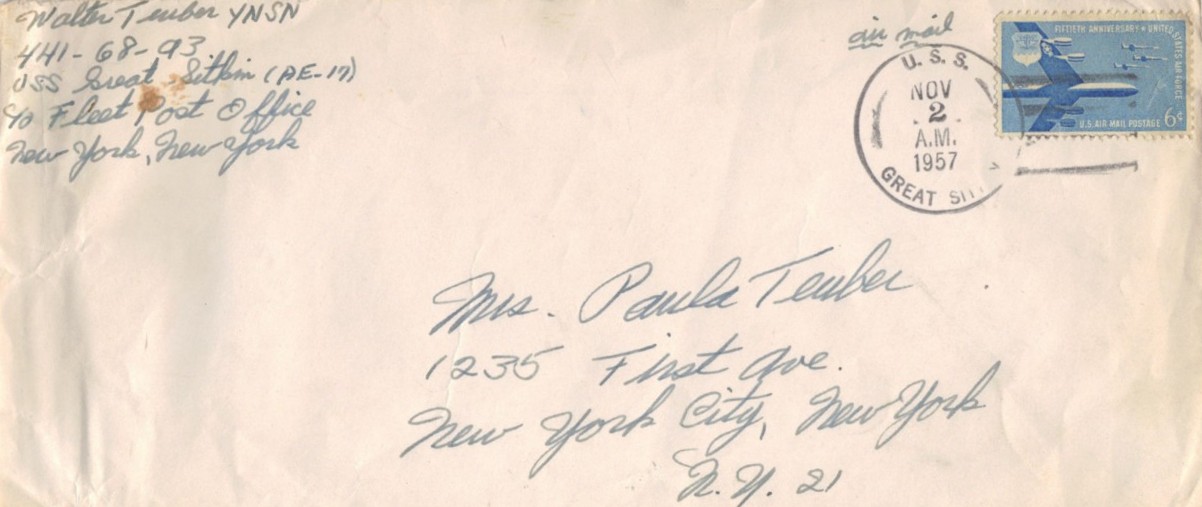 Walter Teuber YNSN
441-68-93
USS Great Sitkin (AE-17)
c/o Fleet Post Office
New York, New York
air mail
U. S. S.
NOV
2
A.M.
1957
GREAT SIT
FIFTIETH ANNIVERSARY ★ UNITED STATES AIR FORCE
U.S. AIR MAIL POSTAGE 6¢
Mrs. Paula Teuber
1235 First Ave.
New York City, New York
N.Y. 21